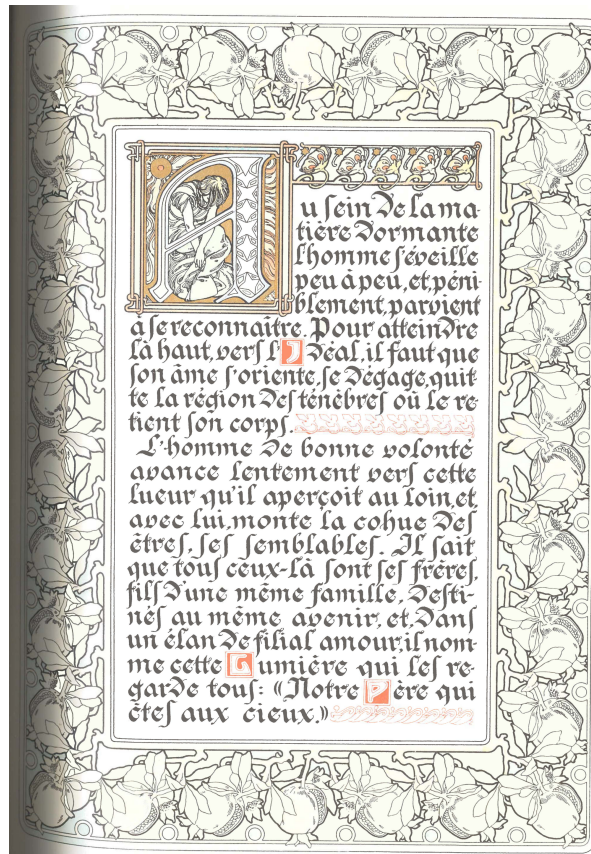 Au sein de la ma-
tière dormante
l'homme s'éveille
peu à peu, et, péni-
blement, parvient
à se reconnaître. Pour atteindre
là haut, vers l'Idéal, il faut que
son âme s'oriente, se dégage, quit-
te la région des ténèbres où le re-
tient son corps.
L'homme de bonne volonté
avance lentement vers cette
lueur qu'il aperçoit au loin, et,
avec lui, monte la cohue des
êtres, ses semblables. Il sait
que tous ceux-là sont ses frères,
fils d'une même famille, desti-
nés au même avenir, et, dans
un élan de filial amour, il nom-
me cette Lumière qui les re-
garde tous: «Notre Père qui
êtes aux cieux.»